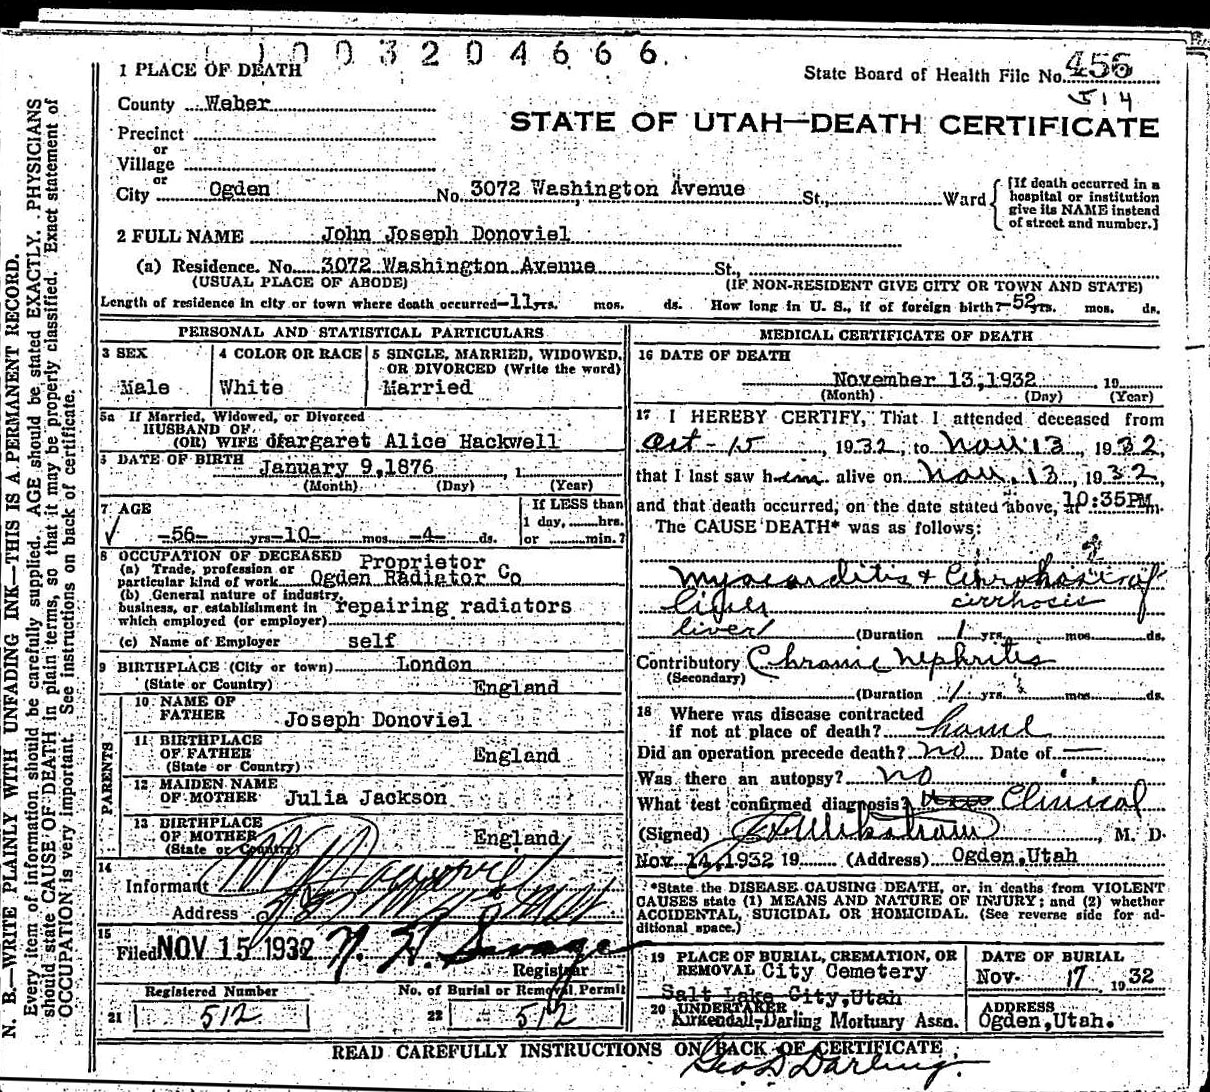 1003204666.
State Board of Health File No. 456
514
STATE OF UTAH—DEATH CERTIFICATE
1 PLACE OF DEATH
County Weber
Precinct
or
Village
or
City Ogden No. 3072 Washington Avenue St., Ward
[If death occurred in a hospital or institution give its NAME instead of street and number.]
2 FULL NAME John Joseph Donoviel
(a) Residence. No. 3072 Washington Avenue St.,
(USUAL PLACE OF ABODE) (IF NON-RESIDENT GIVE CITY OR TOWN AND STATE)
Length of residence in city or town where death occurred -11 yrs. mos. ds. How long in U. S., if of foreign birth? -52 yrs. mos. ds.
PERSONAL AND STATISTICAL PARTICULARS
3 SEX
Male
4 COLOR OR RACE
White
5 SINGLE, MARRIED, WIDOWED, OR DIVORCED (Write the word)
Married
5a If Married, Widowed, or Divorced
HUSBAND OF
(OR) WIFE of Margaret Alice Hackwell
6 DATE OF BIRTH January 9,1876 , 1
(Month) (Day) (Year)
7 AGE
-56- yrs -10- mos. -4- ds.
If LESS than
1 day, hrs.
or min.?
8 OCCUPATION OF DECEASED Proprietor
(a) Trade, profession or
particular kind of work Ogden Radiator Co
(b) General nature of industry,
business, or establishment in repairing radiators
which employed (or employer)
(c) Name of Employer self
9 BIRTHPLACE (City or town) London
(State or Country) England
PARENTS
10 NAME OF
FATHER Joseph Donoviel
11 BIRTHPLACE
OF FATHER England
(State or Country)
12 MAIDEN NAME
OF MOTHER Julia Jackson
13 BIRTHPLACE
OF MOTHER England
(State or Country)
14
Informant
Address
15
Filed NOV 15 1932 N. H. Savage
Registrar
Registered Number
21 512
No. of Burial or Removal Permit
22 512
MEDICAL CERTIFICATE OF DEATH
16 DATE OF DEATH
November 13,1932 19
(Month) (Day) (Year)
17 I HEREBY CERTIFY, That I attended deceased from
Oct - 15, 1932, to Nov. 13, 1932,
that I last saw him alive on Nov. 13, 1932,
and that death occurred, on the date stated above, at 10:35PM m.
The CAUSE DEATH* was as follows:
?
Myocarditis + Cirrhosis of
Liver cirrhosis
liver (Duration 1 yrs. mos. ds.
Contributory Chronic Nephritis
(Secondary)
(Duration 1 yrs. mos. ds.
18 Where was disease contracted
if not at place of death? home
Did an operation precede death? no Date of —
Was there an autopsy? no
What test confirmed diagnosis? Clinical
(Signed) , M. D.
Nov. 14,1932 19 (Address) Ogden,Utah
*State the DISEASE CAUSING DEATH, or, in deaths from VIOLENT
CAUSES state (1) MEANS AND NATURE OF INJURY; and (2) whether
ACCIDENTAL, SUICIDAL OR HOMICIDAL. (See reverse side for ad-
ditional space.)
19 PLACE OF BURIAL, CREMATION, OR
REMOVAL City Cemetery
Salt Lake City,Utah
DATE OF BURIAL
Nov. 17, 1932
20 UNDERTAKER
Kirkendall-Darling Mortuary Assn.
ADDRESS
Ogden,Utah.
READ CAREFULLY INSTRUCTIONS ON BACK OF CERTIFICATE.
Geo D Darling.
N. B.—WRITE PLAINLY WITH UNFADING INK—THIS IS A PERMANENT RECORD.
Every item of information should be carefully supplied. AGE should be stated EXACTLY. PHYSICIANS
should state CAUSE OF DEATH in plain terms, so that it may be properly classified. Exact statement of
OCCUPATION is very important. See instructions on back of certificate.